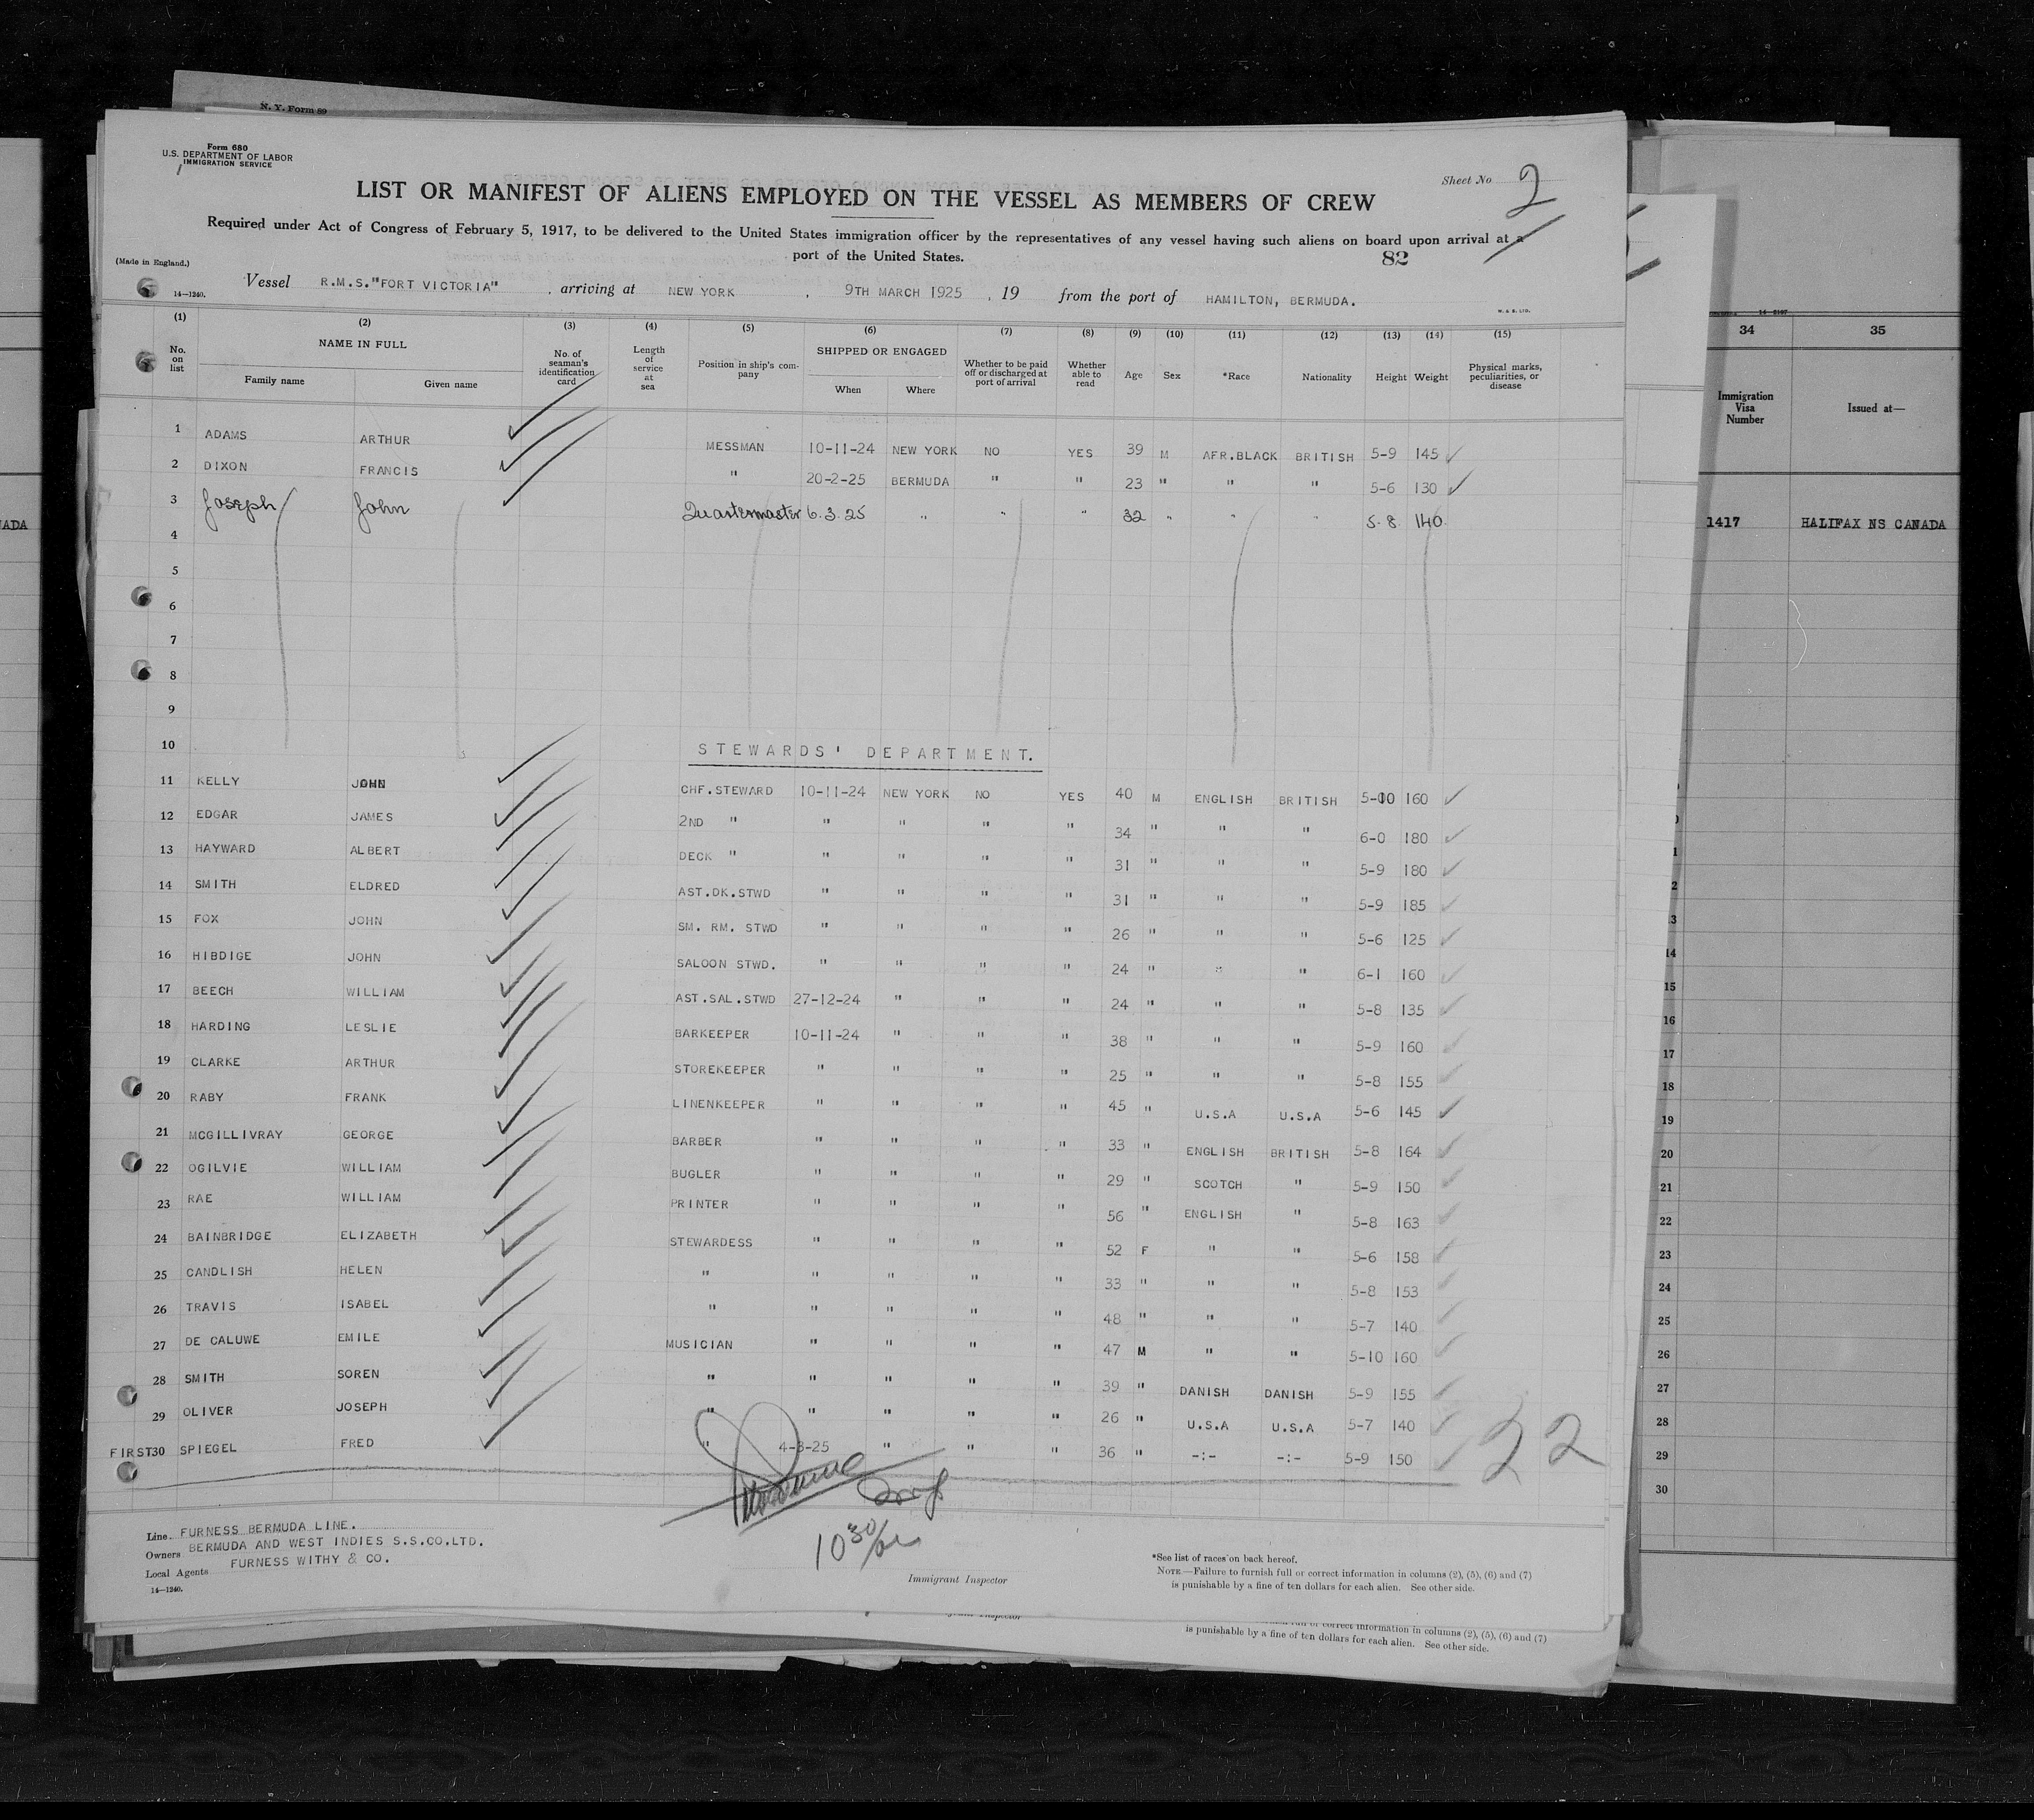 N. Y. Form 89
Form 680
U.S. DEPARTMENT OF LABOR
IMMIGRATION SERVICE
Sheet No. 2
LIST OR MANIFEST OF ALIENS EMPLOYED ON THE VESSEL AS MEMBERS OF CREW
Required under Act of Congress of February 5, 1917, to be delivered to the United States immigration officer by the representatives of any vessel having such aliens on board upon arrival at a
port of the United States.
82
(Made in England.)
14—1240.
Vessel R.M.S."FORT VICTORIA", arriving at NEW YORK, 9TH MARCH 1925, 19 from the port of HAMILTON, BERMUDA.
W. & S. LTD.
(1) (2) (3) (4) (5) (6) (7) (8) (9) (10) (11) (12) (13) (14) (15)
No. on list NAME IN FULL Family name Given name No. of seaman's identification card Length of service at sea Position in ship's company SHIPPED OR ENGAGED When Where Whether to be paid off or discharged at port of arrival Whether able to read Age Sex *Race Nationality Height Weight Physical marks, peculiarities, or disease
1 ADAMS ARTHUR MESSMAN 10-11-24 NEW YORK NO YES 39 M AFR.BLACK BRITISH 5-9 145
2 DIXON FRANCIS " 20-2-25 BERMUDA " " 23 " " " 5-6 130
3 Joseph John Quartermaster 6.3.25 " " " 32 " " " 5.8 140
4
5
6
7
8
9
10 STEWARDS' DEPARTMENT.
11 KELLY JOHN CHF.STEWARD 10-11-24 NEW YORK NO YES 40 M ENGLISH BRITISH 5-10 160
12 EDGAR JAMES 2ND " " " " " 34 " " " 6-0 180
13 HAYWARD ALBERT DECK " " " " " 31 " " " 5-9 180
14 SMITH ELDRED AST.DK.STWD " " " " 31 " " " 5-9 185
15 FOX JOHN SM. RM. STWD " " " " 26 " " " 5-6 125
16 HIBDIGE JOHN SALOON STWD. " " " " 24 " " " 6-1 160
17 BEECH WILLIAM AST.SAL.STWD 27-12-24 " " " 24 " " " 5-8 135
18 HARDING LESLIE BARKEEPER 10-11-24 " " " 38 " " " 5-9 160
19 CLARKE ARTHUR STOREKEEPER " " " " 25 " " " 5-8 155
20 RABY FRANK LINENKEEPER " " " " 45 " U.S.A U.S.A 5-6 145
21 MCGILLIVRAY GEORGE BARBER " " " " 33 " ENGLISH BRITISH 5-8 164
22 OGILVIE WILLIAM BUGLER " " " " 29 " SCOTCH " 5-9 150
23 RAE WILLIAM PRINTER " " " " 56 " ENGLISH " 5-8 163
24 BAINBRIDGE ELIZABETH STEWARDESS " " " " 52 F " " 5-6 158
25 CANDLISH HELEN " " " " " 33 " " " 5-8 153
26 TRAVIS ISABEL " " " " " 48 " " " 5-7 140
27 DE CALUWE EMILE MUSICIAN " " " " 47 M " " 5-10 160
28 SMITH SOREN " " " " " 39 " DANISH DANISH 5-9 155
29 OLIVER JOSEPH " " " " " 26 " U.S.A U.S.A 5-7 140
FIRST 30 SPIEGEL FRED " 4-3-25 " " " 36 " -:- -:- 5-9 150
22
10 30/
Line. FURNESS BERMUDA LINE.
Owners BERMUDA AND WEST INDIES S.S.CO.LTD.
Local Agents FURNESS WITHY & CO.
14—1240.
Immigrant Inspector
*See list of races on back hereof.
NOTE.—Failure to furnish full or correct information in columns (2), (5), (6) and (7)
is punishable by a fine of ten dollars for each alien. See other side.
correct information in columns (2), (5), (6) and (7)
is punishable by a fine of ten dollars for each alien. See other side.
34 35
Immigration Visa Number Issued at—
1417 HALIFAX NS CANADA
14
15
16
17
18
19
20
21
22
23
24
25
26
27
28
29
30